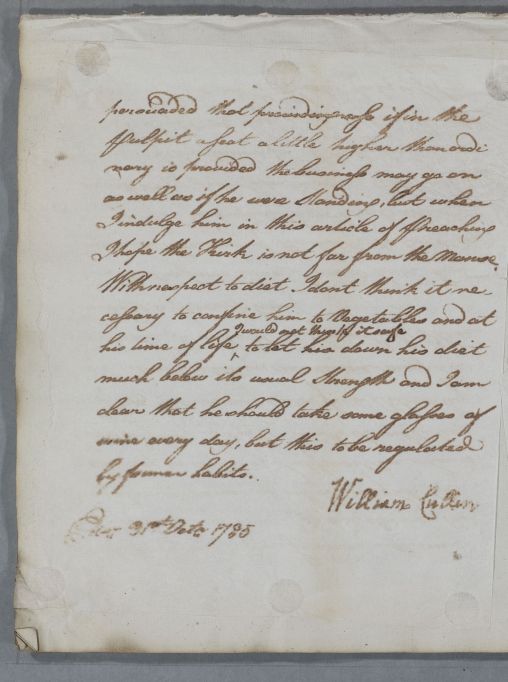 persuaded that preaching is if in the
Pulpit a seat a little higher than ordi
nary is provided the business may go on
as well as if he were standing, but when
I indulge him in this article of Preaching
I hope the Kirk is not far from the Manse.
With respect to diet. I dont think it ne-
cessary to confine him to Vegetables and at
I would not think it safe
his time of life ^ to let his down his diet
much below its usual Strength and I am
clear that he should take some glasses of
wine every day, but this to be regulated
by former habits..
William Cullen
31st Octr 1785